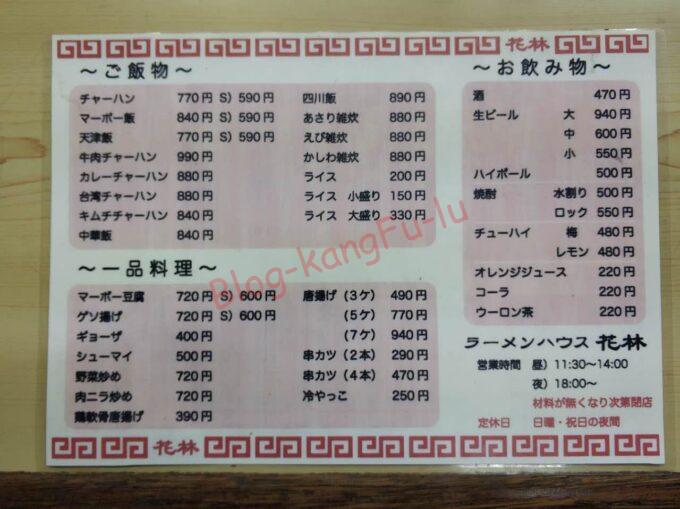 花林
～ご飯物～
チャーハン 770円 S）590円
マーボー飯 840円 S）590円
天津飯 770円 S）590円
牛肉チャーハン 990円
カレーチャーハン 880円
台湾チャーハン 880円
キムチチャーハン 840円
中華飯 840円
四川飯 890円
あさり雑炊 880円
えび雑炊 880円
かしわ雑炊 880円
ライス 200円
ライス 小盛り 150円
ライス 大盛り 330円
～一品料理～
マーボー豆腐 720円 S）600円
ゲソ揚げ 720円 S）600円
ギョーザ 400円
シューマイ 500円
野菜炒め 720円
肉ニラ炒め 720円
鶏軟骨唐揚げ 390円
唐揚げ（3ケ） 490円
（5ケ） 770円
（7ケ） 940円
串カツ（2本） 290円
串カツ（4本） 470円
冷やっこ 250円
～お飲み物～
酒 470円
生ビール 大 940円
中 600円
小 550円
ハイボール 500円
焼酎 水割り 500円
ロック 550円
チューハイ 梅 480円
レモン 480円
オレンジジュース 220円
コーラ 220円
ウーロン茶 220円
ラーメンハウス 花林
営業時間 昼）11:30～14:00
夜）18:00～
材料が無くなり次第閉店
定休日 日曜・祝日の夜間
花林
Blog-kangFu-lu